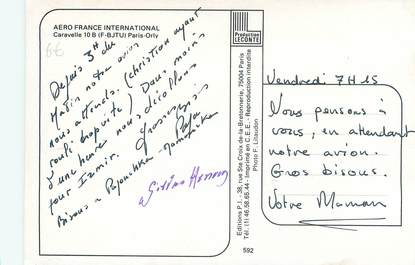 AERO FRANCE INTERNATIONAL
Caravelle 10 B (F-BJTU) Paris-Orly
66
Depuis 3H du
Matin notre avion
nous attends. (christian ayant
roulé trop vite) Dans moins
d'une heure nous décollons
pour Izmir. Gros
Bisous Papa
Production
LECONTE
Editions P.I. - 38, rue Ste Croix-de-la-Bretonnerie, 75004 Paris
Tél. (1) 46.58.65.44 - Imprimé en C.E.E. - Reproduction interdite
Photo F. Lilaudon
592
Vendredi 7H15
Nous pensons à
vous, en attendant
notre avion.
Gros bisous.
Votre Maman